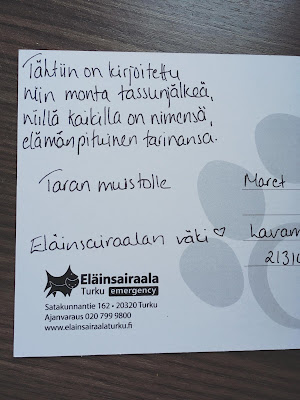 Tähtiin on kirjoitettu
niin monta tassunjälkeä,
niillä kaikilla on nimensä,
elämänpituinen tarinansa.
Taran muistolle
Maret
Eläinsairaalan väki ♡
Eläinsairaala
Turku emergency
Satakunnantie 162 • 20320 Turku
Ajanvaraus 020 799 9800
www.elainsairaalaturku.fi